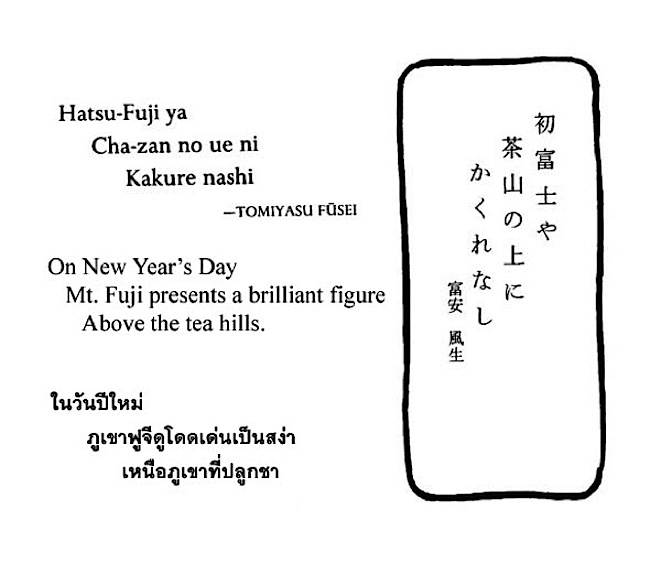 Hatsu-Fuji ya
Cha-zan no ue ni
Kakure nashi
—TOMIYASU FŪSEI
On New Year's Day
Mt. Fuji presents a brilliant figure
Above the tea hills.
ในวันปีใหม่
ภูเขาฟูจีดูโดดเด่นเป็นสง่า
เหนือภูเขาที่ปลูกชา
初富士や
茶山の上に
かくれなし
富安 風生